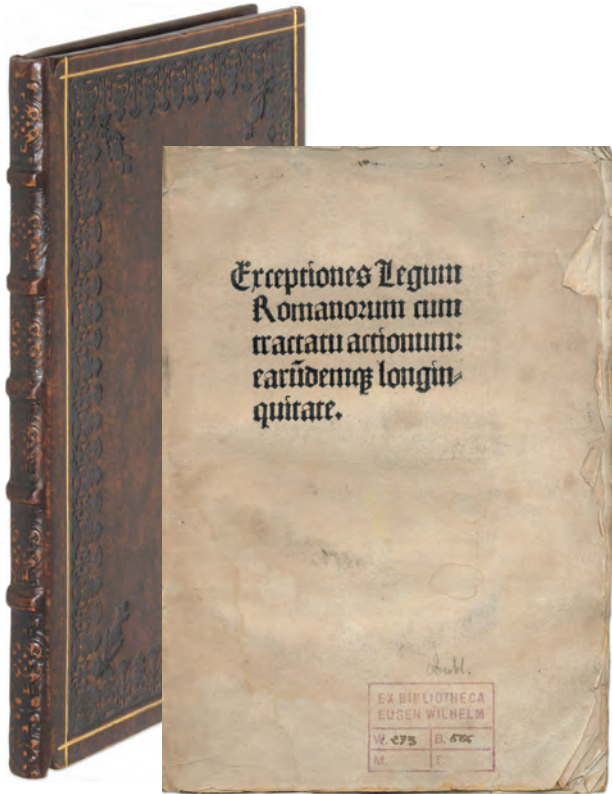 Exceptiones Legum
Romanorum cum
tractatu actionum:
earūdemqꝫ longin⸗
quitate.
Dubl.
EX BIBLIOTHECA
EUGEN WILHELM
W. 273 B. 666
M. T.